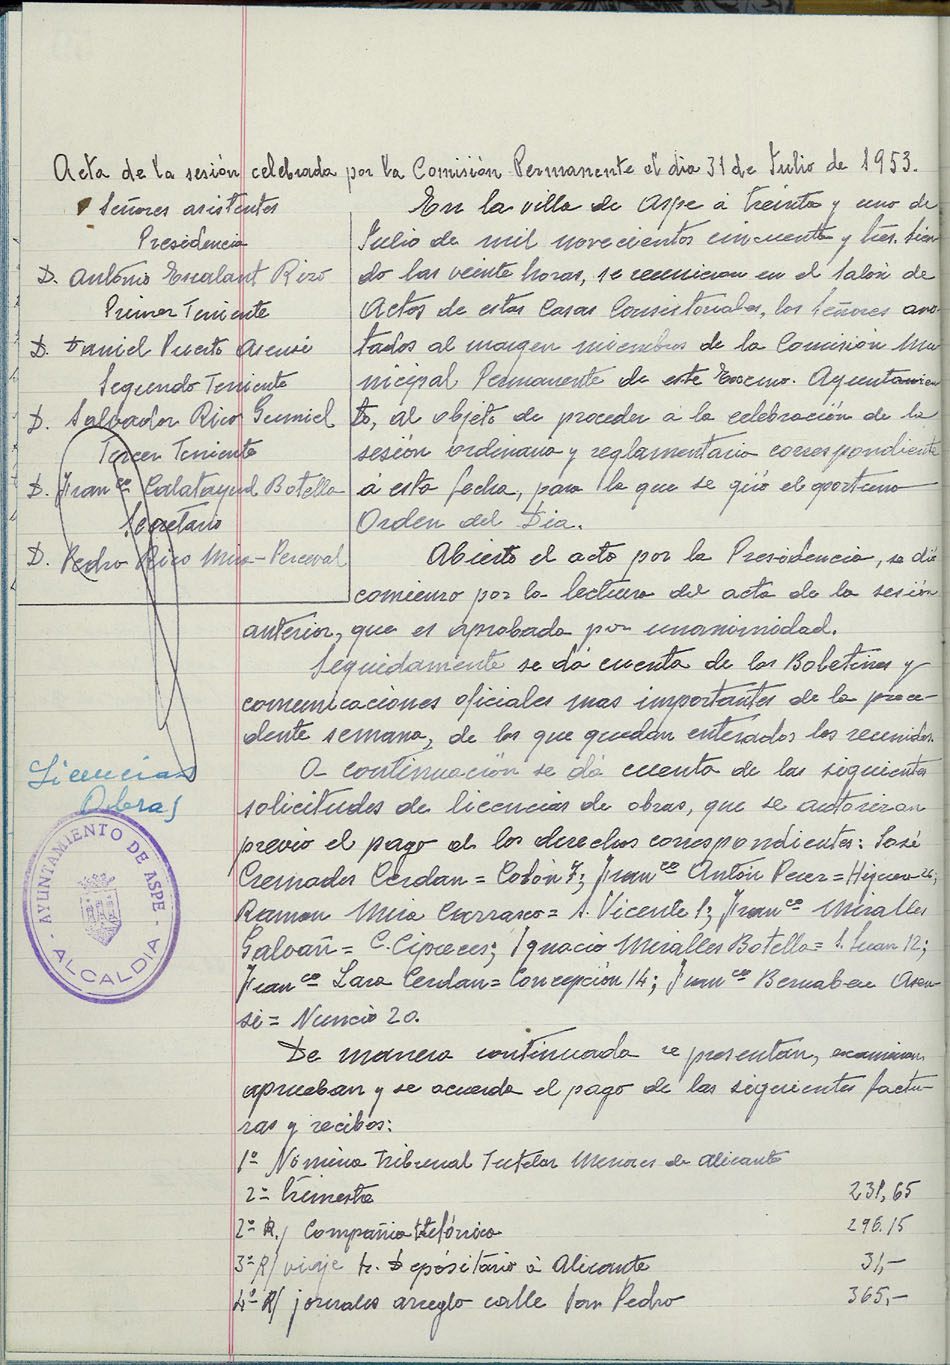 Acta de la sesión celebrada por la Comisión Permanente el dia 31 de Julio de 1953.
Señores asistentes
Presidencia
D. Antonio Escalant Rizo
Primer Teniente
D. Daniel Puerto Asensi
Segundo Teniente
D. Salvador Rico Gumiel
Tercer Teniente
D. Franco Calatayud Botella
Secretario
D. Pedro Rico Mira-Perceval
En la villa de Aspe á treinta y uno de
Julio de mil novecientos cincuenta y tres. Sien-
do las veinte horas, se reunieron en el Salón de
Actos de estas Casas Consistoriales, los Señores ano-
tados al margen miembros de la Comisión Mu-
nicipal Permanente de este Excmo. Ayuntamien
to, al objeto de proceder á la celebración de la
sesión ordinaria y reglamentaria correspondiente
á esta fecha, para la que se giró el oportuno
Orden del Dia.
Abierto el acto por la Presidencia, se dió
comienzo por la lectura del acta de la sesión
anterior, que es aprobada por unanimidad.
Seguidamente se dá cuenta de los Boletines y
comunicaciones oficiales mas importantes de la prece-
dente semana, de los que quedan enterados los reunidos.
Licencias
Obras
A continuación se dá cuenta de las siguientes
solicitudes de licencias de obras, que se autorizan
previo el pago de los derechos correspondientes: José
Cremades Cerdan = Colón 7; Franco Antón Perez = 26;
Ramon Mira Carrasco = S. Vicente 1; Franco Miralles
Galvañ = C. Cipreces; Ignacio Miralles Botella = S. Juan 12;
Franco Lara Cerdan = Concepción 14; Franco Bernabeu Asen-
si = Nuncio 20.
AYUNTAMIENTO DE ASPE
- ALCALDIA -
De manera continuada se presentan, examinan
aprueban y se acuerda el pago de las siguientes factu-
ras y recibos:
1º Nómina Tribunal Tutelar Menores de Alicante
2º trimestre 231,65
2º R/ Compañia telefónica 296.15
3º R/ viaje Sr. Depósitario á Alicante 31,-
4º R/ jornales arreglo calle San Pedro 365,-